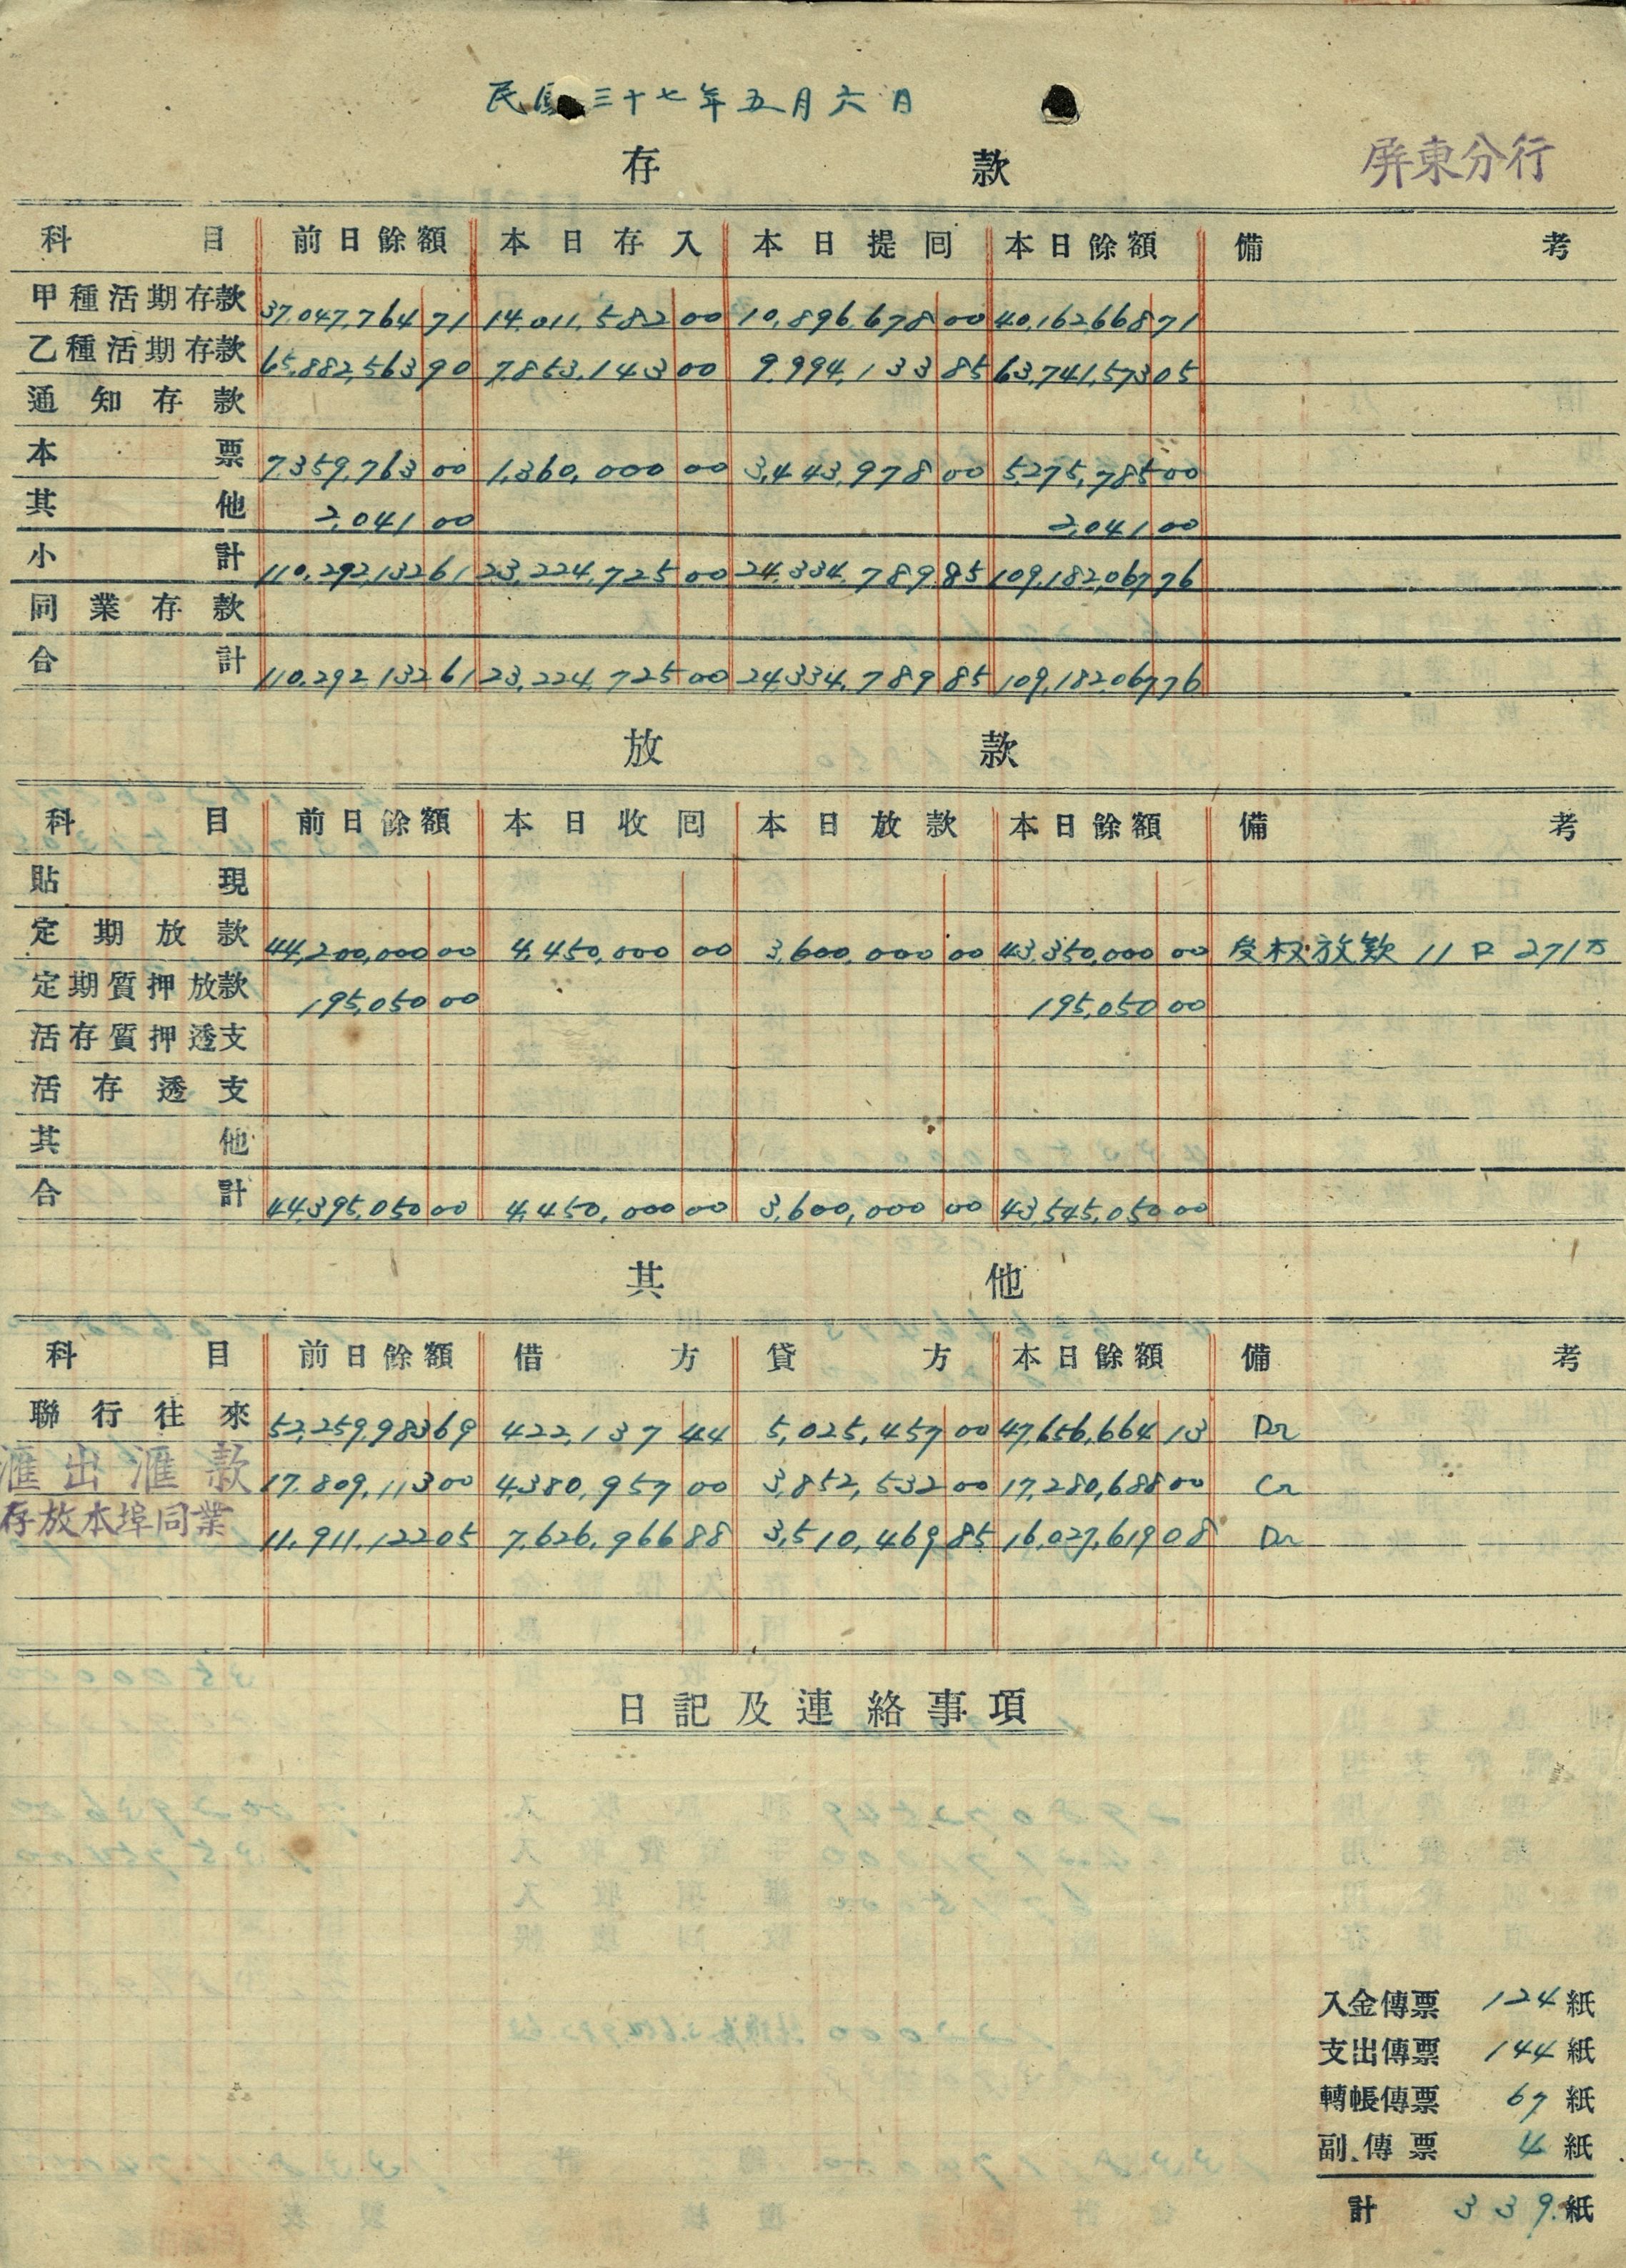 民國三十七年五月六日
存款
屏東分行
科目 前日餘額 本日存入 本日提回 本日餘額 備考
甲種活期存款 37,047,764 71 14,011,582 00 10,896,678 00 40,162,668 71
乙種活期存款 65,882,563 90 7,853,143 00 9,994,133 85 63,741,573 05
通知存款
本票 7,359,763 00 1,360,000 00 3,443,978 00 5,275,785 00
其他 2,041 00 2,041 00
小計 110,292,132 61 23,224,725 00 24,334,789 85 109,182,067 76
同業存款
合計 110,292,132 61 23,224,725 00 24,334,789 85 109,182,067 76
放款
科目 前日餘額 本日收回 本日放款 本日餘額 備考
貼現
定期放款 44,200,000 00 4,450,000 00 3,600,000 00 43,350,000 00 放款 11口 271万
定期質押放款 195,050 00 195,050 00
活存質押透支
活存透支
其他
合計 44,395,050 00 4,450,000 00 3,600,000 00 43,545,050 00
其他
科目 前日餘額 借方 貸方 本日餘額 備考
聯行往來 52,259,983 69 422,137 44 5,025,457 00 47,656,664 13 Dr
滙出滙款 17,809,113 00 4,380,957 00 3,852,532 00 17,280,688 00 Cr
存放本埠同業 11,911,122 05 7,626,966 88 3,510,469 85 16,027,619 08 Dr
日記及連絡事項
入金傳票 124 紙
支出傳票 144 紙
轉帳傳票 67 紙
副傳票 4 紙
計 339 紙